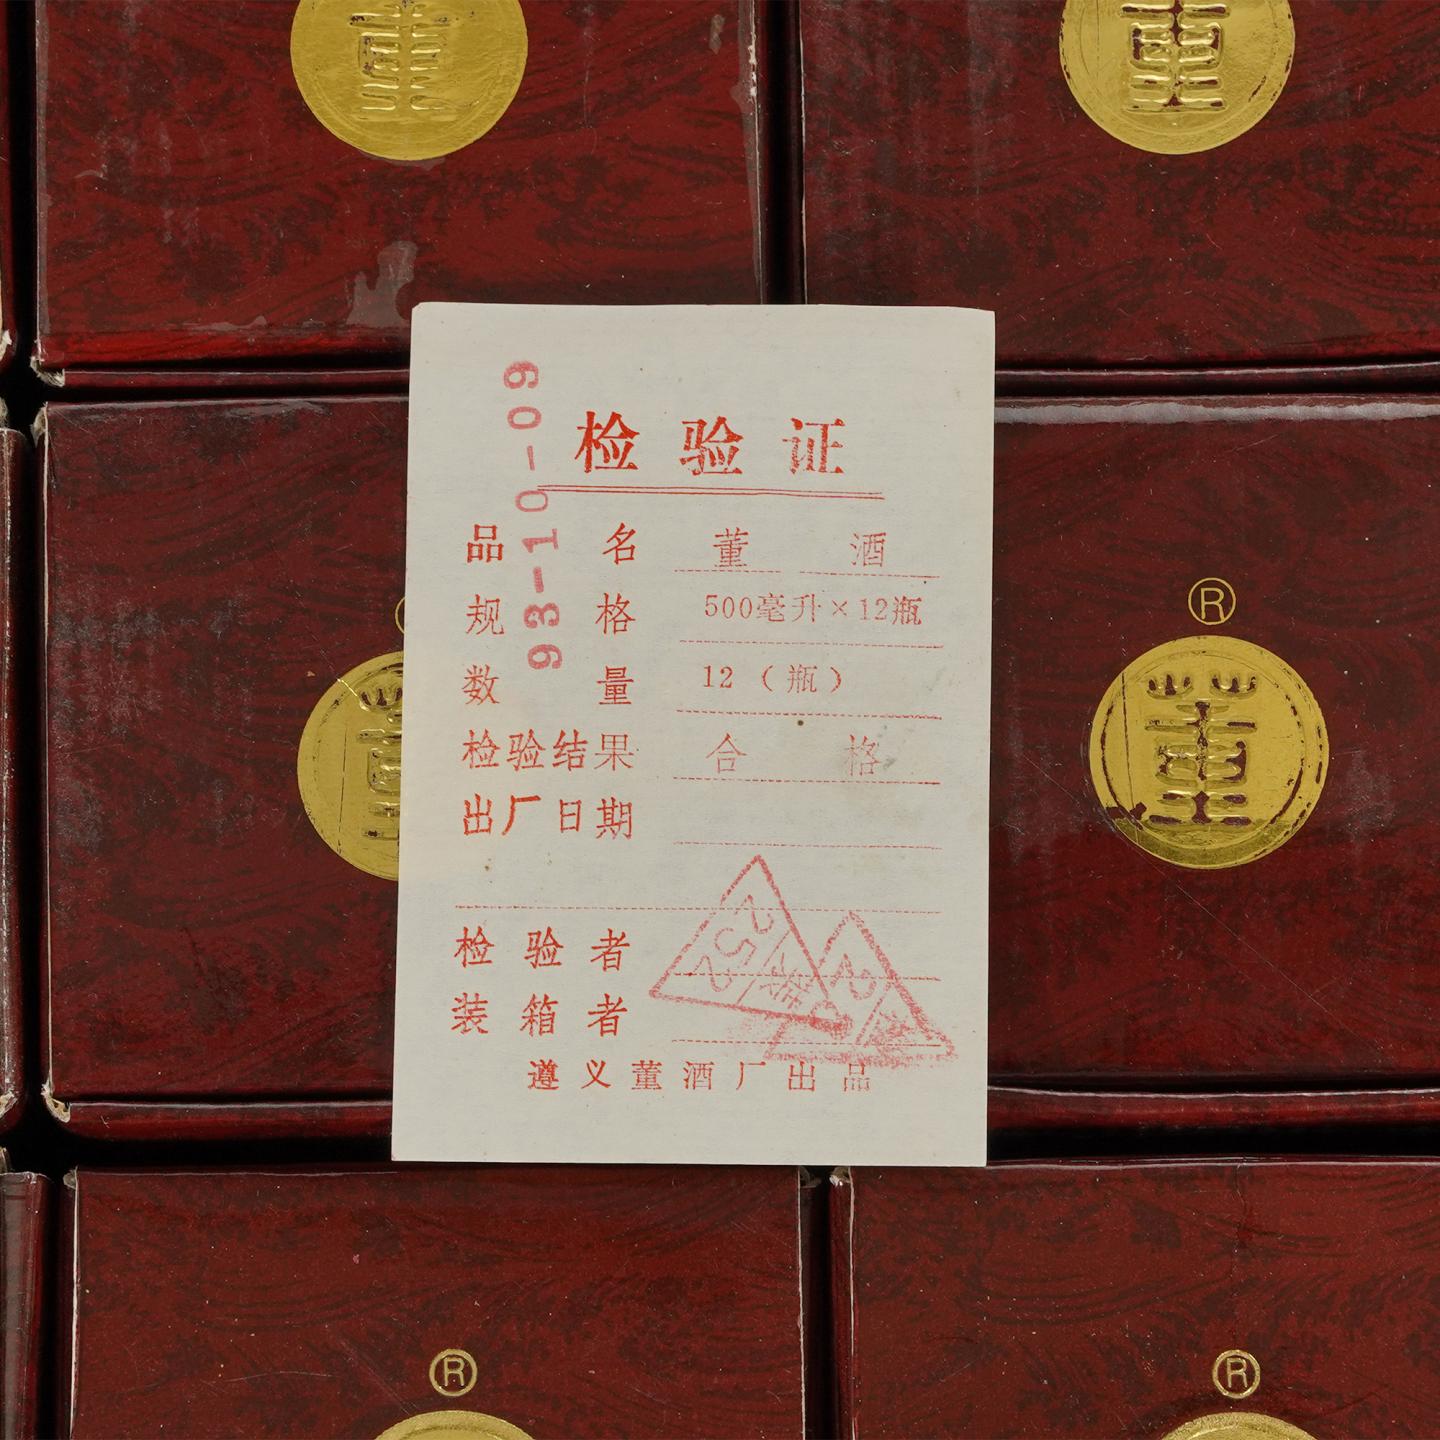 董
董
93-10-09
检验证
品名 董酒
规格 500毫升×12瓶
数量 12（瓶）
检验结果 合格
出厂日期
检验者 252
装箱者
遵义董酒厂出品
®
董
董
®
®